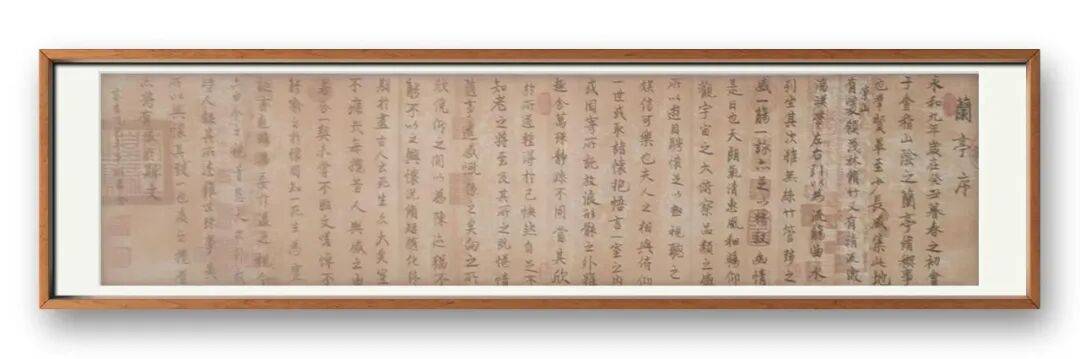 蘭亭序
永和九年歲在癸丑暮春之初會
于會稽山陰之蘭亭脩禊事
也羣賢畢至少長咸集此地
有崇山峻領茂林脩竹又有清流激
湍暎帶左右引以為流觴曲水
列坐其次雖無絲竹管弦之
盛一觴一詠亦足以暢敘幽情
是日也天朗氣清惠風和暢仰
觀宇宙之大俯察品類之盛
所以遊目騁懷足以極視聽之
娛信可樂也夫人之相與俯仰
一世或取諸懷抱悟言一室之內
或因寄所託放浪形骸之外雖
趣舍萬殊靜躁不同當其欣
於所遇暫得於己快然自足不
知老之將至及其所之既惓情
隨事遷感慨係之矣向之所
欣俛仰之間以為陳迹猶不
能不以之興懷況脩短隨化終
期於盡古人云死生亦大矣豈
不痛哉每攬昔人興感之由
若合一契未嘗不臨文嗟悼不
能喻之於懷固知一死生為虛
誕齊彭殤為妄作後之視今
亦由今之視昔悲夫故列敘
時人錄其所述雖世殊事異
所以興懷其致一也後之攬者
亦將有感於斯文